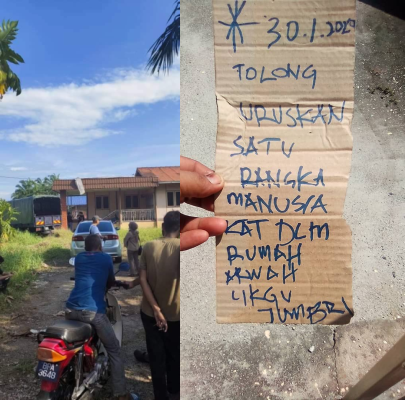 * 30.1.2022
TOLONG
URUSKAN
SATU
RANGKA
MANUSIA
KAT DLM
RUMAH
ARWAH
CIKGU
JUMBRI
3649